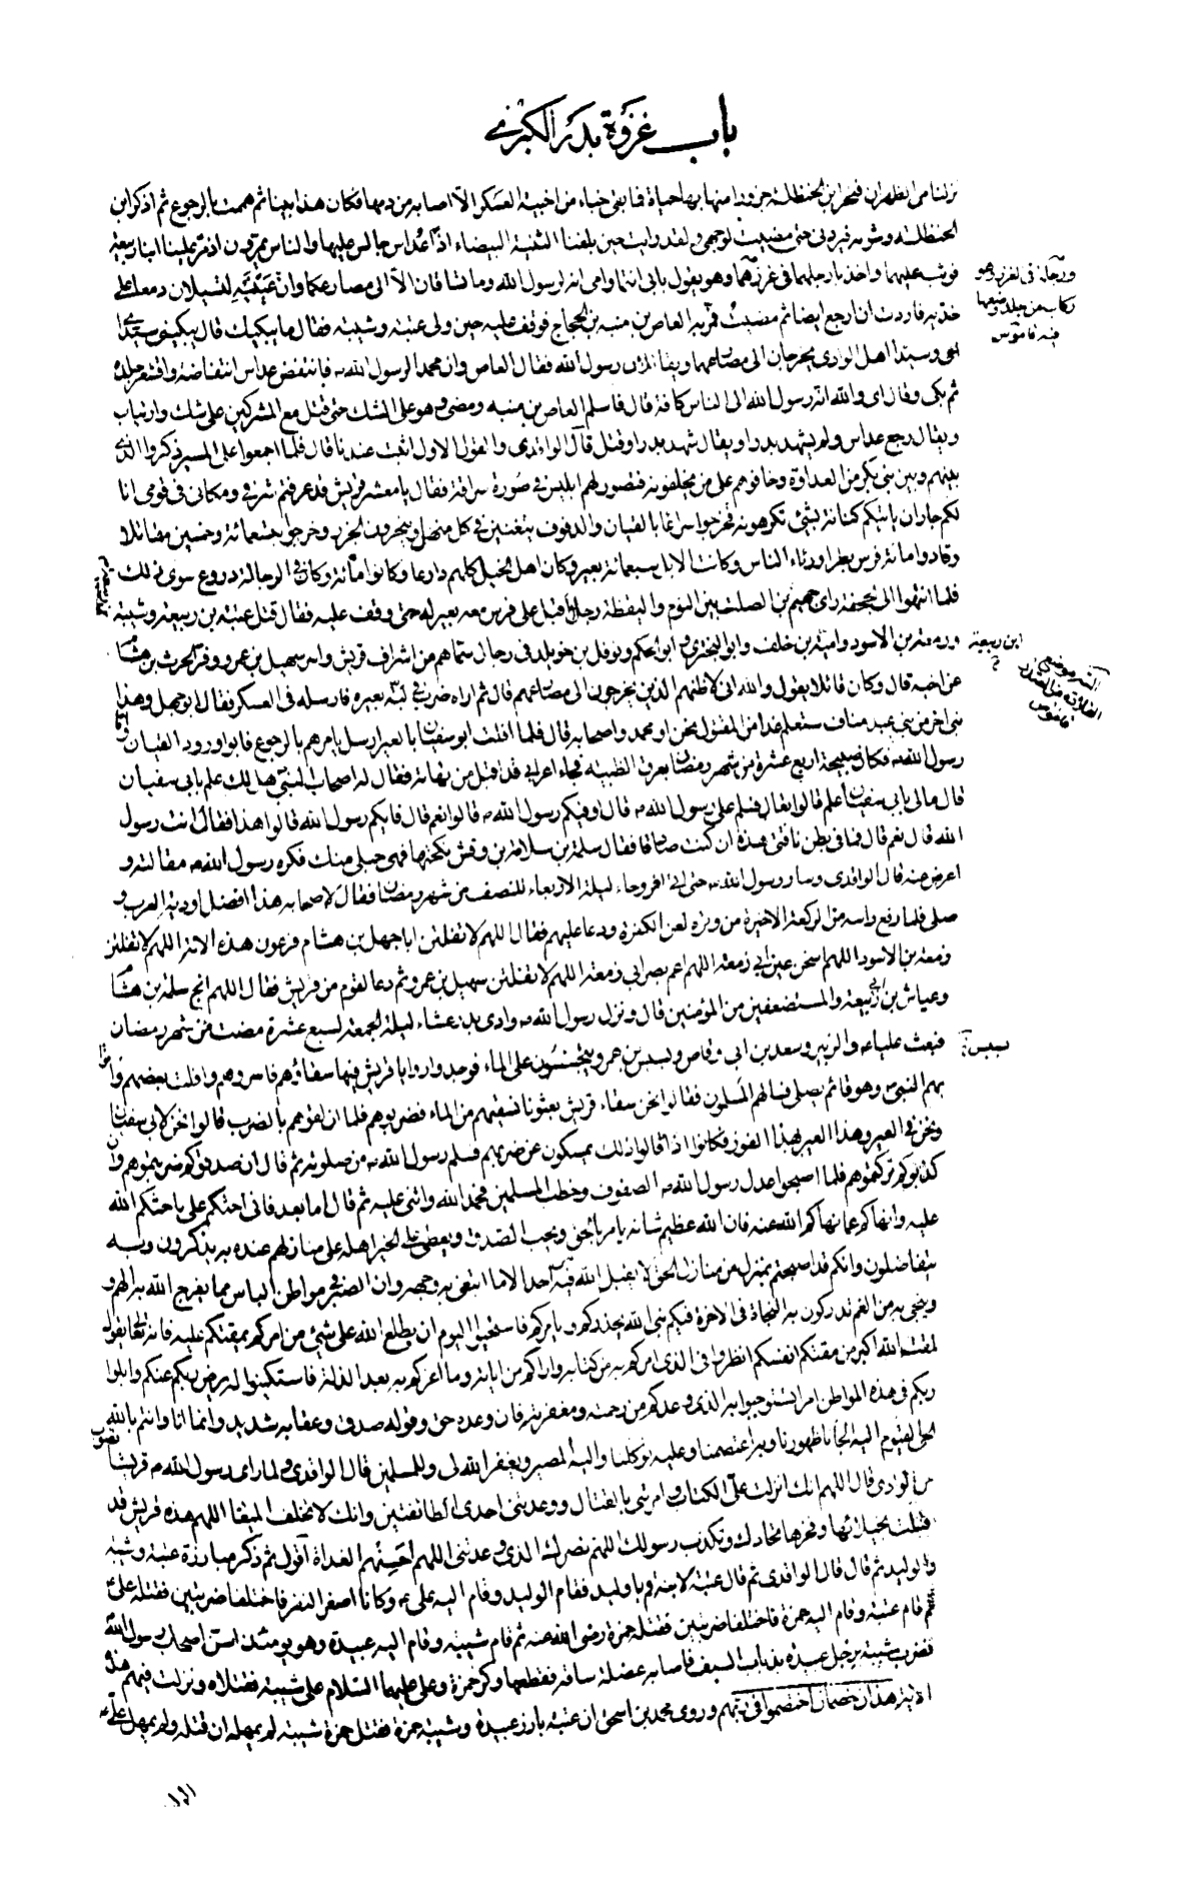 باب غزوة بدر الكبرى
نزلنا مر الظهران فنحر ابن الحنظلية جزورا منها بها حياة فما بقى خباء من اخبية العسكر الا اصابه من دمها فكان هذا بينا ثم هممت بالرجوع ثم اذكر ابن
الحنظلية وشومه فيردنى حتى مضيت لوجهى ولقد رايت حين بلغنا الثنية البيضاء اذا عداس جالس عليها والناس يمرون اذ مر علينا ابنا ربيعة
فوثب عليهما واخذ بارجلهما فى غرزهما وهو يقول بابى انتما وامى انه لرسول الله وما تساقان الا الى مصارعكما وان عينيه لتسيلان دمعا على
خديه فاردت ان ارجع ايضا ثم مضيت فمر به العاص بن منبه بن الحجاج فوقف عليه حين ولى عتبة وشيبة فقال ما يبكيك قال يبكينى سيداى
وسيدا اهل الوادى يخرجان الى مصارعهما ويقاتلان رسول الله فقال العاص وان محمدا لرسول الله ص فانتفض عداس انتفاضة واقشعر جلده
ثم بكى وقال اى والله انه رسول الله الى الناس كافة قال فاسلم العاص بن منبه ومضى وهو على الشك حتى قتل مع المشركين على شك وارتياب
ويقال رجع عداس ولم يشهد بدرا ويقال شهد بدرا وقتل قال الواقدى والقول الاول اثبت عندنا قال فلما اجمعوا على المسير ذكروا الذى
بينهم وبين بنى بكر من العداوة وخافوهم على من يخلفونه فتصور لهم ابليس فى صورة سراقة فقال يا معشر قريش قد عرفتم شرفى ومكانى فى قومى انا
لكم جار ان ياتيكم كنانة بشئ تكرهونه فخرجوا سراعا بالقيان والدفوف يتغنين فى كل منهل وينحرون الجزر وخرجوا بتسعمائة وخمسين مقاتلا
وقادوا مائة فرس بطرا ورئاء الناس وكانت الابل سبعمائة بعير وكان اهل الخيل كلهم دارعا وكانوا مائة وكان فى الرجالة دروع سوى ذلك
فلما انتهوا الى الجحفة راى جهيم بن الصلت بين النوم واليقظة رجلا اقبل على فرس معه بعير له حتى وقف عليه فقال قتل عتبة بن ربيعة وشيبة
وزمعة بن الاسود وامية بن خلف وابو البخترى وابو الحكم ونوفل بن خويلد فى رجال سماهم من اشراف قريش واسر سهيل بن عمرو وفر الحرث بن هشام
عن اخيه قال وكان قائلا يقول والله انى لاظنهم الذين يخرجون الى مصارعهم قال ثم اراه ضرب فى لبة بعيره فارسله فى العسكر فقال ابو جهل وهذا
نبى اخر من بنى عبد مناف ستعلم غدا من المقتول نحن او محمد واصحابه قال فلما افلت ابو سفيان بالعير ارسل يامرهم بالرجوع فابوا وردوا القيان
رسول الله ص فكان صبيحة اربع عشرة من شهر رمضان بعرق الظبية فجاء اعرابى قد اقبل من تهامة فقال له اصحاب النبى هل لك علم بابى سفيان
قال مالى بابى سفيان علم قالوا تعال فسلم على رسول الله ص قال وفيكم رسول الله ص قالوا نعم قال فايكم رسول الله قالوا هذا فقال انت رسول
الله قال نعم قال فما فى بطن ناقتى هذه ان كنت صادقا فقال سلمة بن سلامة بن وقش نكحتها فهى حبلى منك فكره رسول الله ص مقالته و
اعرض عنه قال الواقدى وسار رسول الله ص حتى اتى الروحاء ليلة الاربعاء للنصف من شهر رمضان فقال لاصحابه هذا افضل اودية العرب و
صلى فلما رفع راسه من الركعة الاخيرة من وتره لعن الكفرة ودعا عليهم فقال اللهم لا تفلتن ابا جهل بن هشام فرعون هذه الامة اللهم لا تفلتن
زمعة بن الاسود اللهم اسخن عين ابى زمعة اللهم اعم بصر ابى زمعة اللهم لا تفلتن سهيل بن عمرو ثم دعا لقوم من قريش فقال اللهم انج سلمة بن هشام
وعياش بن ابى ربيعة والمستضعفين من المؤمنين قال ونزل رسول الله ص وادى بدر عشاء ليلة الجمعة لسبع عشرة مضت من شهر رمضان
فبعث عليا ع والزبير وسعد بن ابى وقاص وبسبس بن عمرو يتجسسون على الماء فوجدوا روايا قريش فيها سقاؤهم فاسروهم وافلت بعضهم واتوا
بهم النبى ص وهو قائم يصلى فسالهم المسلمون فقالوا نحن سقاء قريش بعثونا نسقيهم من الماء فضربوهم فلما ان لقوهم بالضرب قالوا نحن لابى سفيان
ونحن فى العير وهذا العير بهذا القوز فكانوا اذا قالوا ذلك يمسكون عن ضربهم فسلم رسول الله ص من صلوته ثم قال ان صدقوكم ضربتموهم وان
كذبوكم تركتموهم فلما اصبحوا عدل رسول الله ص الصفوف وخطب المسلمين فحمد الله واثنى عليه ثم قال اما بعد فانى احثكم على ما حثكم الله
عليه وانهاكم عما نهاكم الله عنه فان الله عظيم شانه يامر بالحق ويحب الصدق ويعطى على الخير اهله على منازلهم عنده به يذكرون وبه
يتفاضلون وانكم قد اصبحتم بمنزل من منازل الحق لا يقبل الله فيه من احد الا ما ابتغى به وجهه وان الصبر فى مواطن الباس مما يفرج الله به الهم و
وينجى به من الغم تدركون به النجاة فى الاخرة فيكم نبى الله يحذركم ويامركم فاستحيوا اليوم ان يطلع الله على شئ من امركم يمقتكم عليه فانه تعالى يقول
لمقت الله اكبر من مقتكم انفسكم انظروا فى الذى امركم به من كتابه واراكم من اياته وما اعزكم به بعد الذلة فاستكينوا له يرض ربكم عنكم وابلوا
ربكم فى هذه المواطن امرا تستوجبوا به الذى وعدكم من رحمته ومغفرته فان وعده حق وقوله صدق وعقابه شديد وانما انا وانتم بالله
الحى القيوم اليه الجانا ظهورنا وبه اعتصمنا وعليه توكلنا واليه المصير ويغفر الله لى وللمسلمين قال الواقدى ولما راى رسول الله ص قريشا تصوب
من الوادى قال اللهم انك انزلت على الكتاب وامرتنى بالقتال ووعدتنى احدى الطائفتين وانك لا تخلف الميعاد اللهم هذه قريش قد
اقبلت بخيلائها وفخرها تحادك وتكذب رسولك اللهم نصرك الذى وعدتنى اللهم احنهم الغداة اقول ثم ذكر مبارزة عتبة وشيبة
والوليد ثم قال قال الواقدى ثم قال عتبة لابنه قم يا وليد فقام الوليد وقام اليه على ع وكانا اصغر النفر فاختلفا ضربتين فقتله على ع
ثم قام عتبة وقام اليه حمزة فاختلفا ضربتين فقتله حمزة رضى الله عنه ثم قام شيبة وقام اليه عبيدة وهو يومئذ اسن اصحاب رسول الله
فضرب شيبة رجل عبيدة بذباب السيف فاصاب عضلة ساقه فقطعها وكر حمزة وعلى عليهما السلام على شيبة فقتلاه ونزلت فيهم هذه
الاية هذان خصمان اختصموا فى ربهم وروى محمد بن اسحق ان عتبة بارز عبيدة وشيبة حمزة فقتل حمزة شيبة لم يمهله ان قتله ولم يمهل على ع
ورجله فى الغرز وهو
ركاب من جلد وضعها
فيه قاموس
ابن ربيعة
موضع القلادة من الصدر
قاموس
بسبس